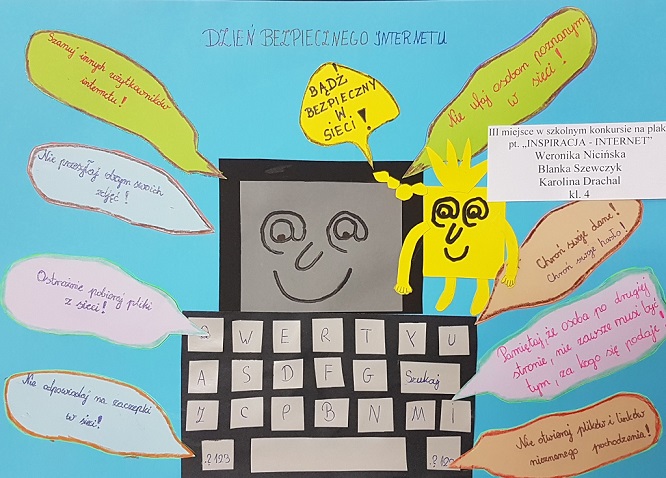 DZIEŃ BEZPIECZNEGO INTERNETU
Szanuj innych użytkowników
internetu!
! BĄDŹ
BEZPIECZNY
W
SIECI!
Nie ufaj osobom poznanym
w sieci!
III miejsce w szkolnym konkursie na plak
pt. „INSPIRACJA - INTERNET”
Weronika Nicińska
Blanka Szewczyk
Karolina Drachal
kl. 4
Nie przesyłaj obcym swoich
zdjęć!
@ @
@@
Chroń swoje dane!
Chroń swoje hasło!
Ostrożnie pobieraj pliki
z sieci!
Pamiętaj, że osoba po drugiej
stronie, nie zawsze musi być
tym, za kogo się podaje!
Q W E R T Y U
A S D F G Szukaj
Z C P B N M i
Nie odpowiadaj na zaczepki
w sieci!
Nie otwieraj plików i linków
nieznanego pochodzenia!
.?123
.?123